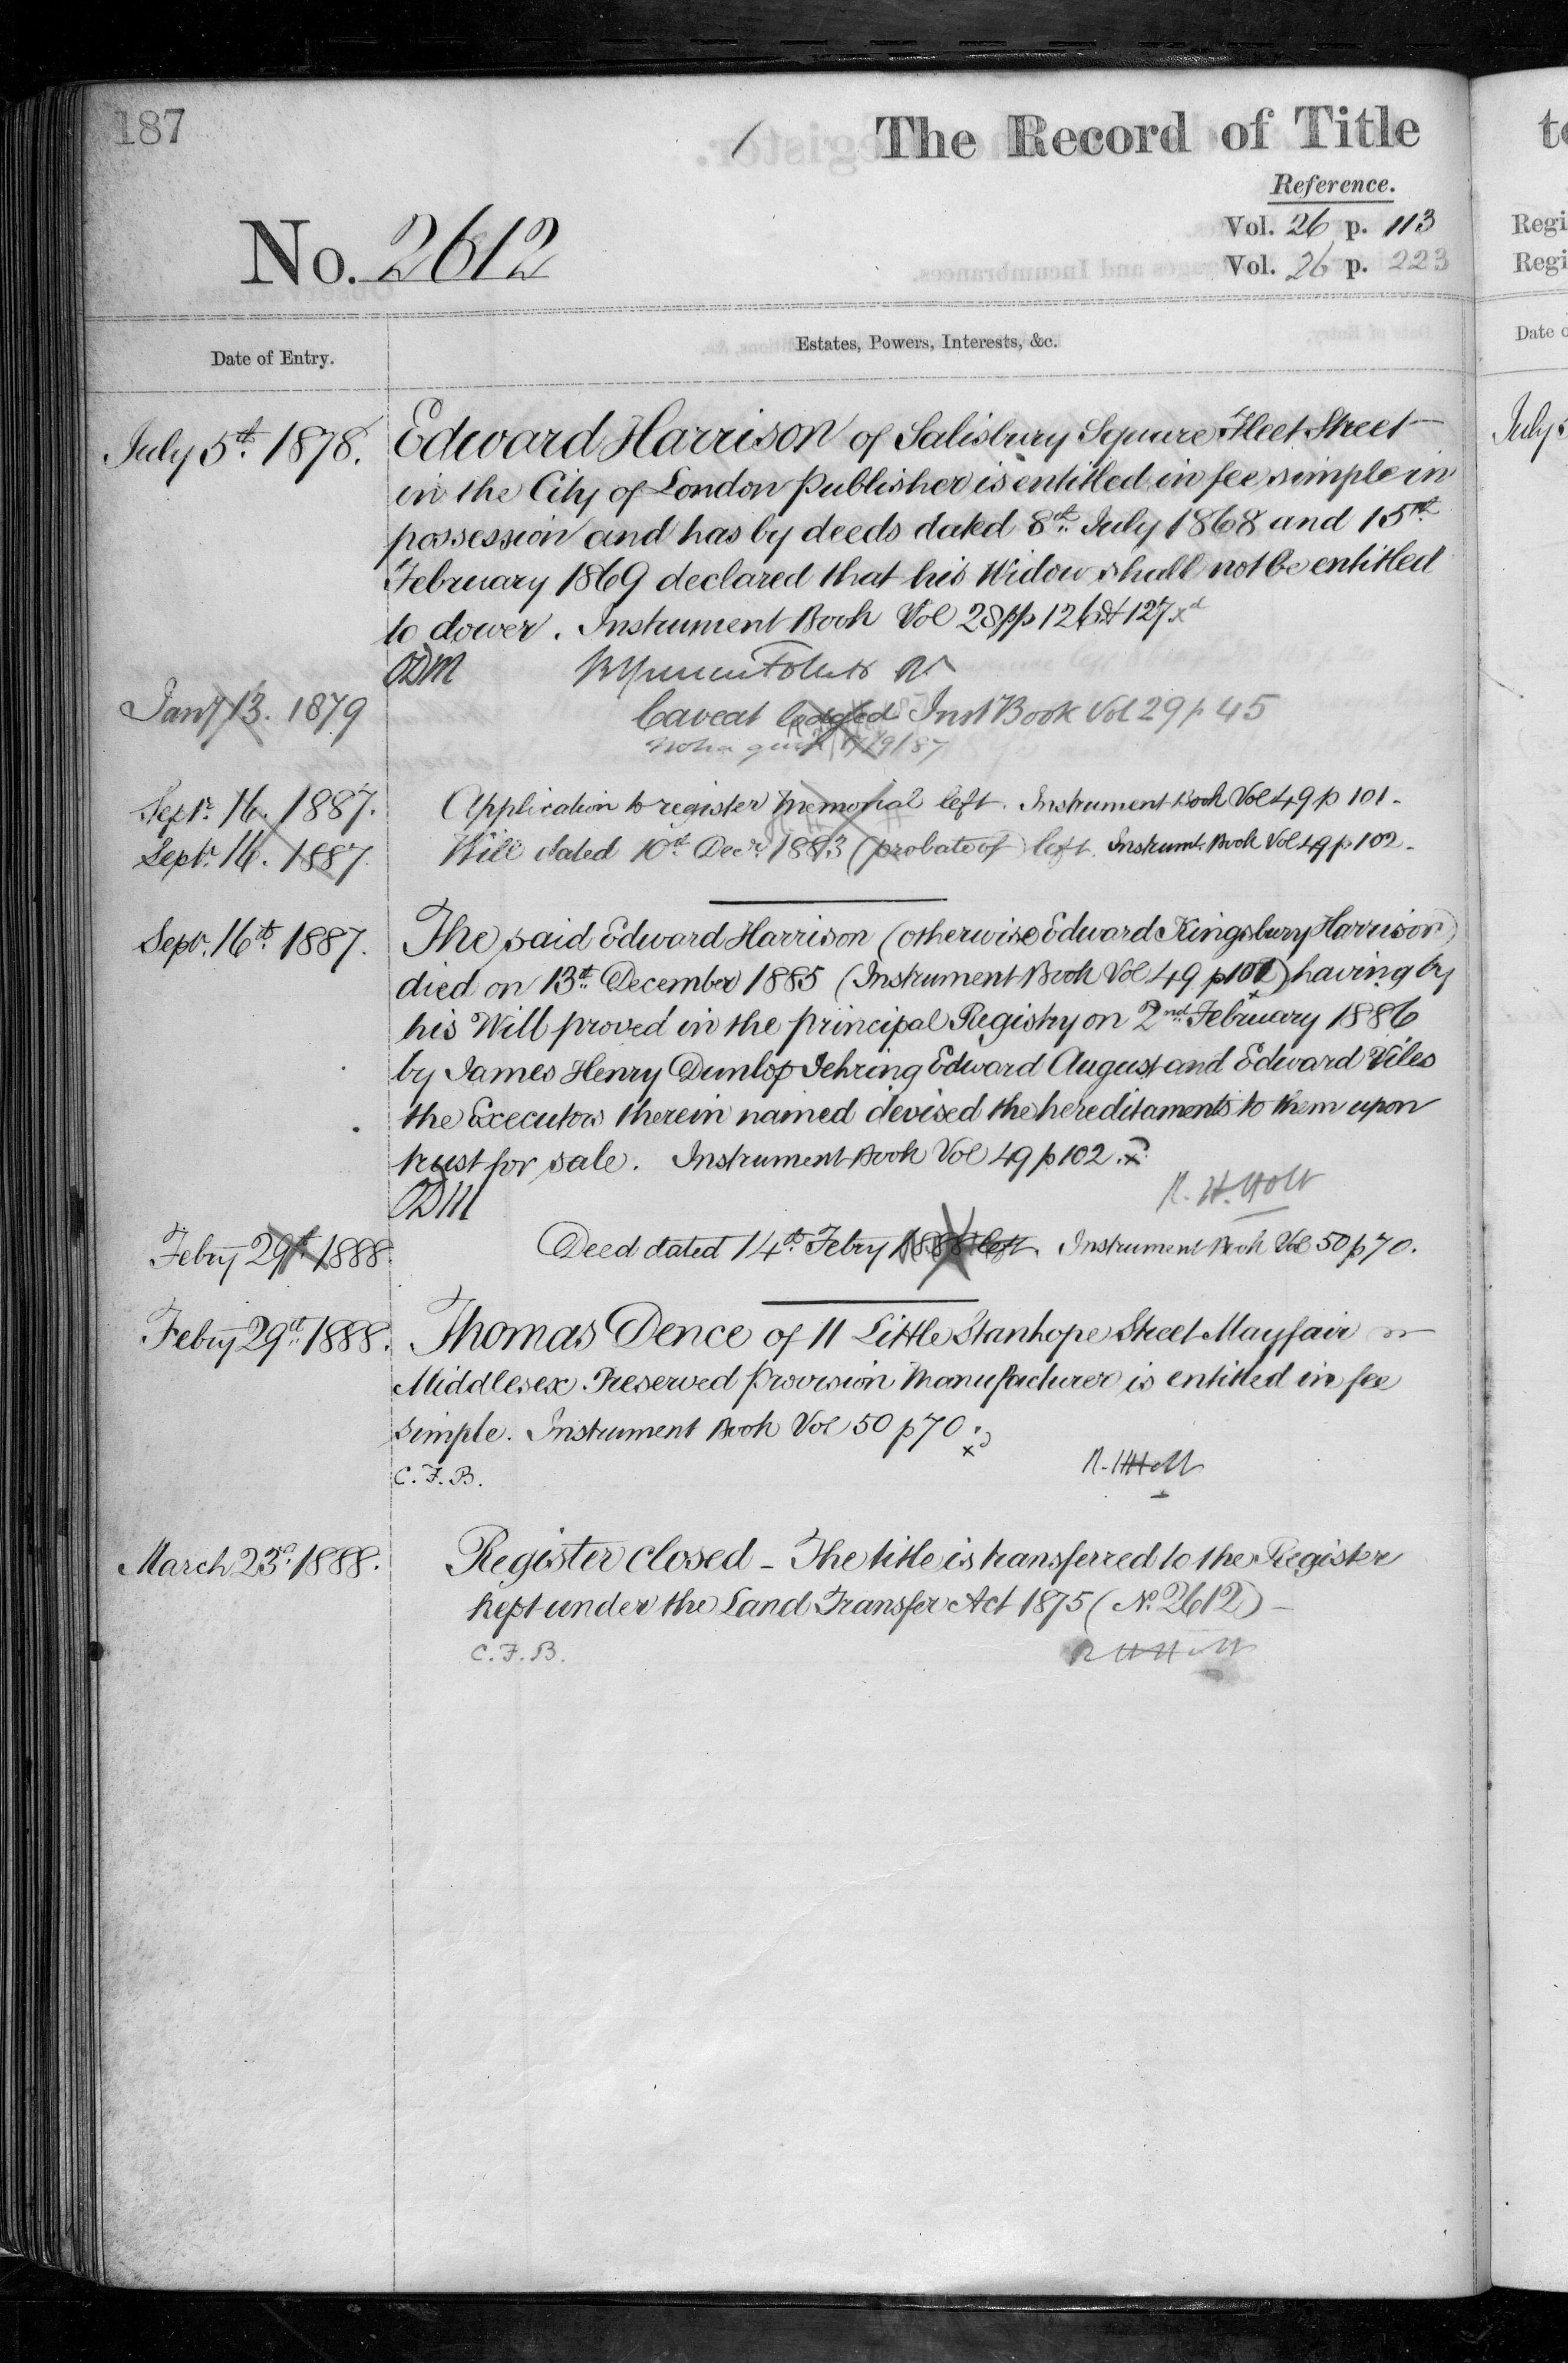 187
The Record of Title
Reference.
No. 2612
Vol. 26 p. 113
Vol. 26 p. 223
Date of Entry.
Estates, Powers, Interests, &c.
July 5th 1878.
Edward Harrison of Salisbury Square Fleet Street
in the City of London Publisher is entitled in fee simple in
possession and has by deeds dated 8th July 1868 and 15th
February 1869 declared that his Widow shall not be entitled
to dower. Instrument Book Vol 28 pp 126 & 127
ODM
Jany 13. 1879
Caveat lodged Inst Book Vol 29 p 45
17/9/87
Septr. 16. 1887.
Application to register Memorial left. Instrument Book Vol 49 p 101.
Septr. 16. 1887.
Will dated 10th Decr. 1883 (probate of) left. Instrumt. Book Vol 49 p 102.
Septr. 16th 1887.
The said Edward Harrison (otherwise Edward Kingsbury Harrison)
died on 13th December 1885 (Instrument Book Vol 49 p 101) having by
his Will proved in the principal Registry on 2nd February 1886
by James Henry Dunlop Jehring Edward August and Edward Viles
the Executors therein named devised the hereditaments to them upon
trust for sale. Instrument Book Vol 49 p 102.
ODM
R. H. Holt
Febry 29th 1888.
Deed dated 14th Febry 1888 left. Instrument Book Vol 50 p 70.
Febry 29th 1888.
Thomas Dence of 11 Little Stanhope Street Mayfair
Middlesex Preserved Provision Manufacturer is entitled in fee
simple. Instrument Book Vol 50 p 70
C. F. B.
R. H. Holt
March 23d. 1888.
Register closed - The title is transferred to the Register
kept under the Land Transfer Act 1875 (No. 2612) -
C. F. B.
R H Holt
Regi
Regi
Date o
July 5